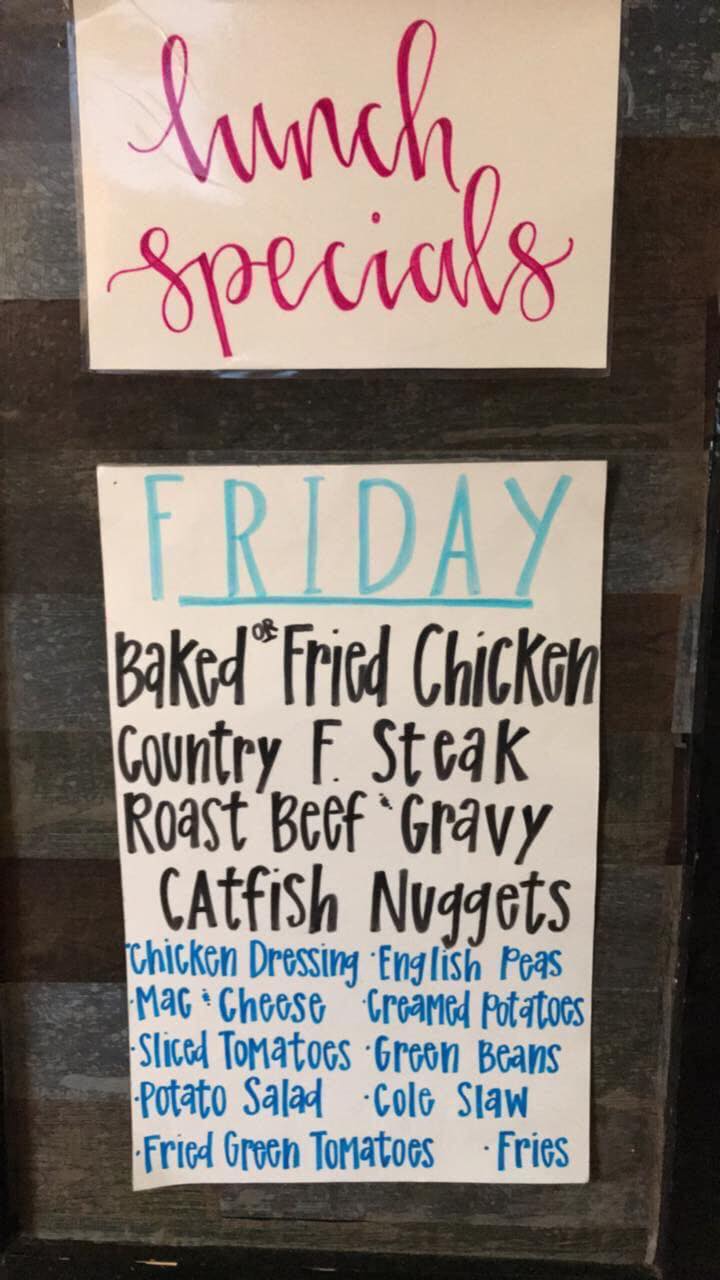 lunch
specials
FRIDAY
Baked OR Fried Chicken
Country F. Steak
Roast Beef & Gravy
Catfish Nuggets
·Chicken Dressing ·English Peas
·Mac & Cheese ·Creamed Potatoes
·Sliced Tomatoes ·Green Beans
·Potato Salad ·Cole Slaw
·Fried Green Tomatoes ·Fries